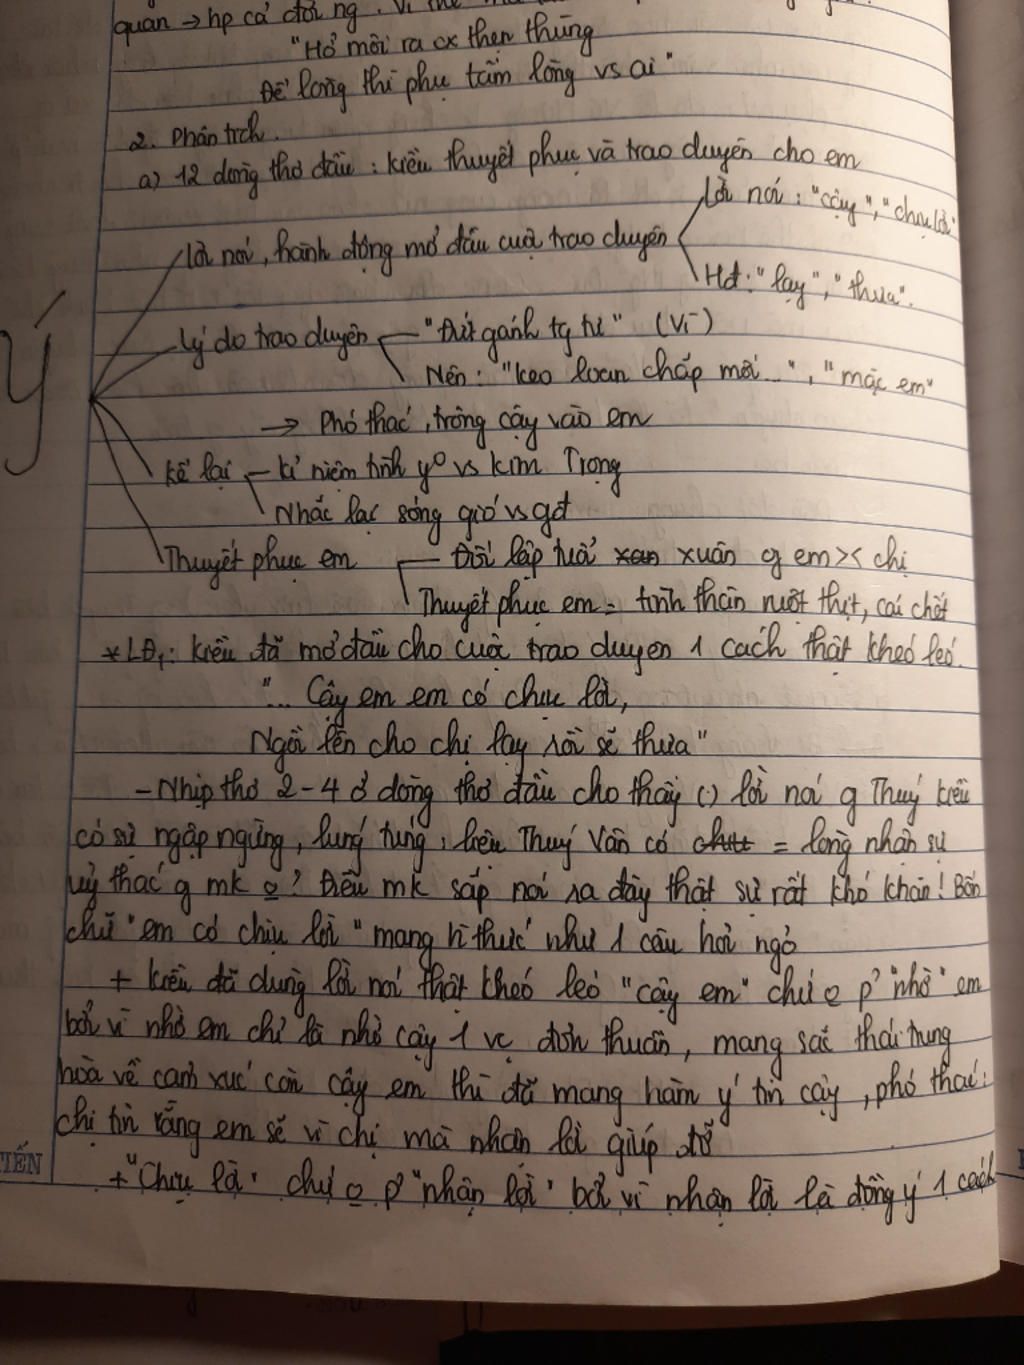 quan → hp cả đời ng. Vì thế
"Hở môi ra cx thẹn thùng
Để lòng thì phụ tấm lòng vs ai"
2. Phân tích.
a) 12 dòng thơ đầu : Kiều thuyết phục và trao duyên cho em
Lời nói : "cậy", "chịu lời"
Lời nói, hành động mở đầu cuộc trao duyên
Hđ: "lạy", "thưa".
Lý do trao duyên "Đứt gánh tg tư" (Vì)
Nên : "Keo loan chắp mối...", "mặc em"
Ý
→ Phó thác, trông cậy vào em
Kể lại - kỉ niệm tình y⁰ vs Kim Trọng
Nhắc lại sóng gió vs gđ
Thuyết phục em Đối lập tuổi xuân g em >< chị
Thuyết phục em = tình thân ruột thịt, cái chết
* LĐ₁: Kiều đã mở đầu cho cuộc trao duyên 1 cách thật khéo léo.
"... Cậy em em có chịu lời,
Ngồi lên cho chị lạy rồi sẽ thưa"
- Nhịp thơ 2-4 ở dòng thơ đầu cho thấy (.) lời nói g Thuý Kiều
có sự ngập ngừng, lúng túng : liệu Thuý Vân có = lòng nhận sự
uỷ thác g mk o? Điều mk sắp nói ra đây thật sự rất khó khăn! Bốn
chữ "em có chịu lời" mang h thức như 1 câu hỏi ngỏ
+ Kiều đã dùng lời nói thật khéo léo "cậy em" chứ o p' "nhờ" em
bởi vì nhờ em chỉ là nhờ cậy 1 vc đơn thuần, mang sắc thái trung
hoà về cảm xúc còn cậy em thì đã mang hàm ý tin cậy, phó thác :
chị tin rằng em sẽ vì chị mà nhận lời giúp đỡ
TIẾN
+ "Chịu lời" chứ o p' "nhận lời" bởi vì nhận lời là đồng ý 1 cách